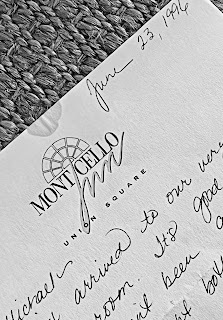 June 23, 1996
MONTICELLO
Inn
UNION SQUARE
Michael-
arrived to our very
room. It's good
been a